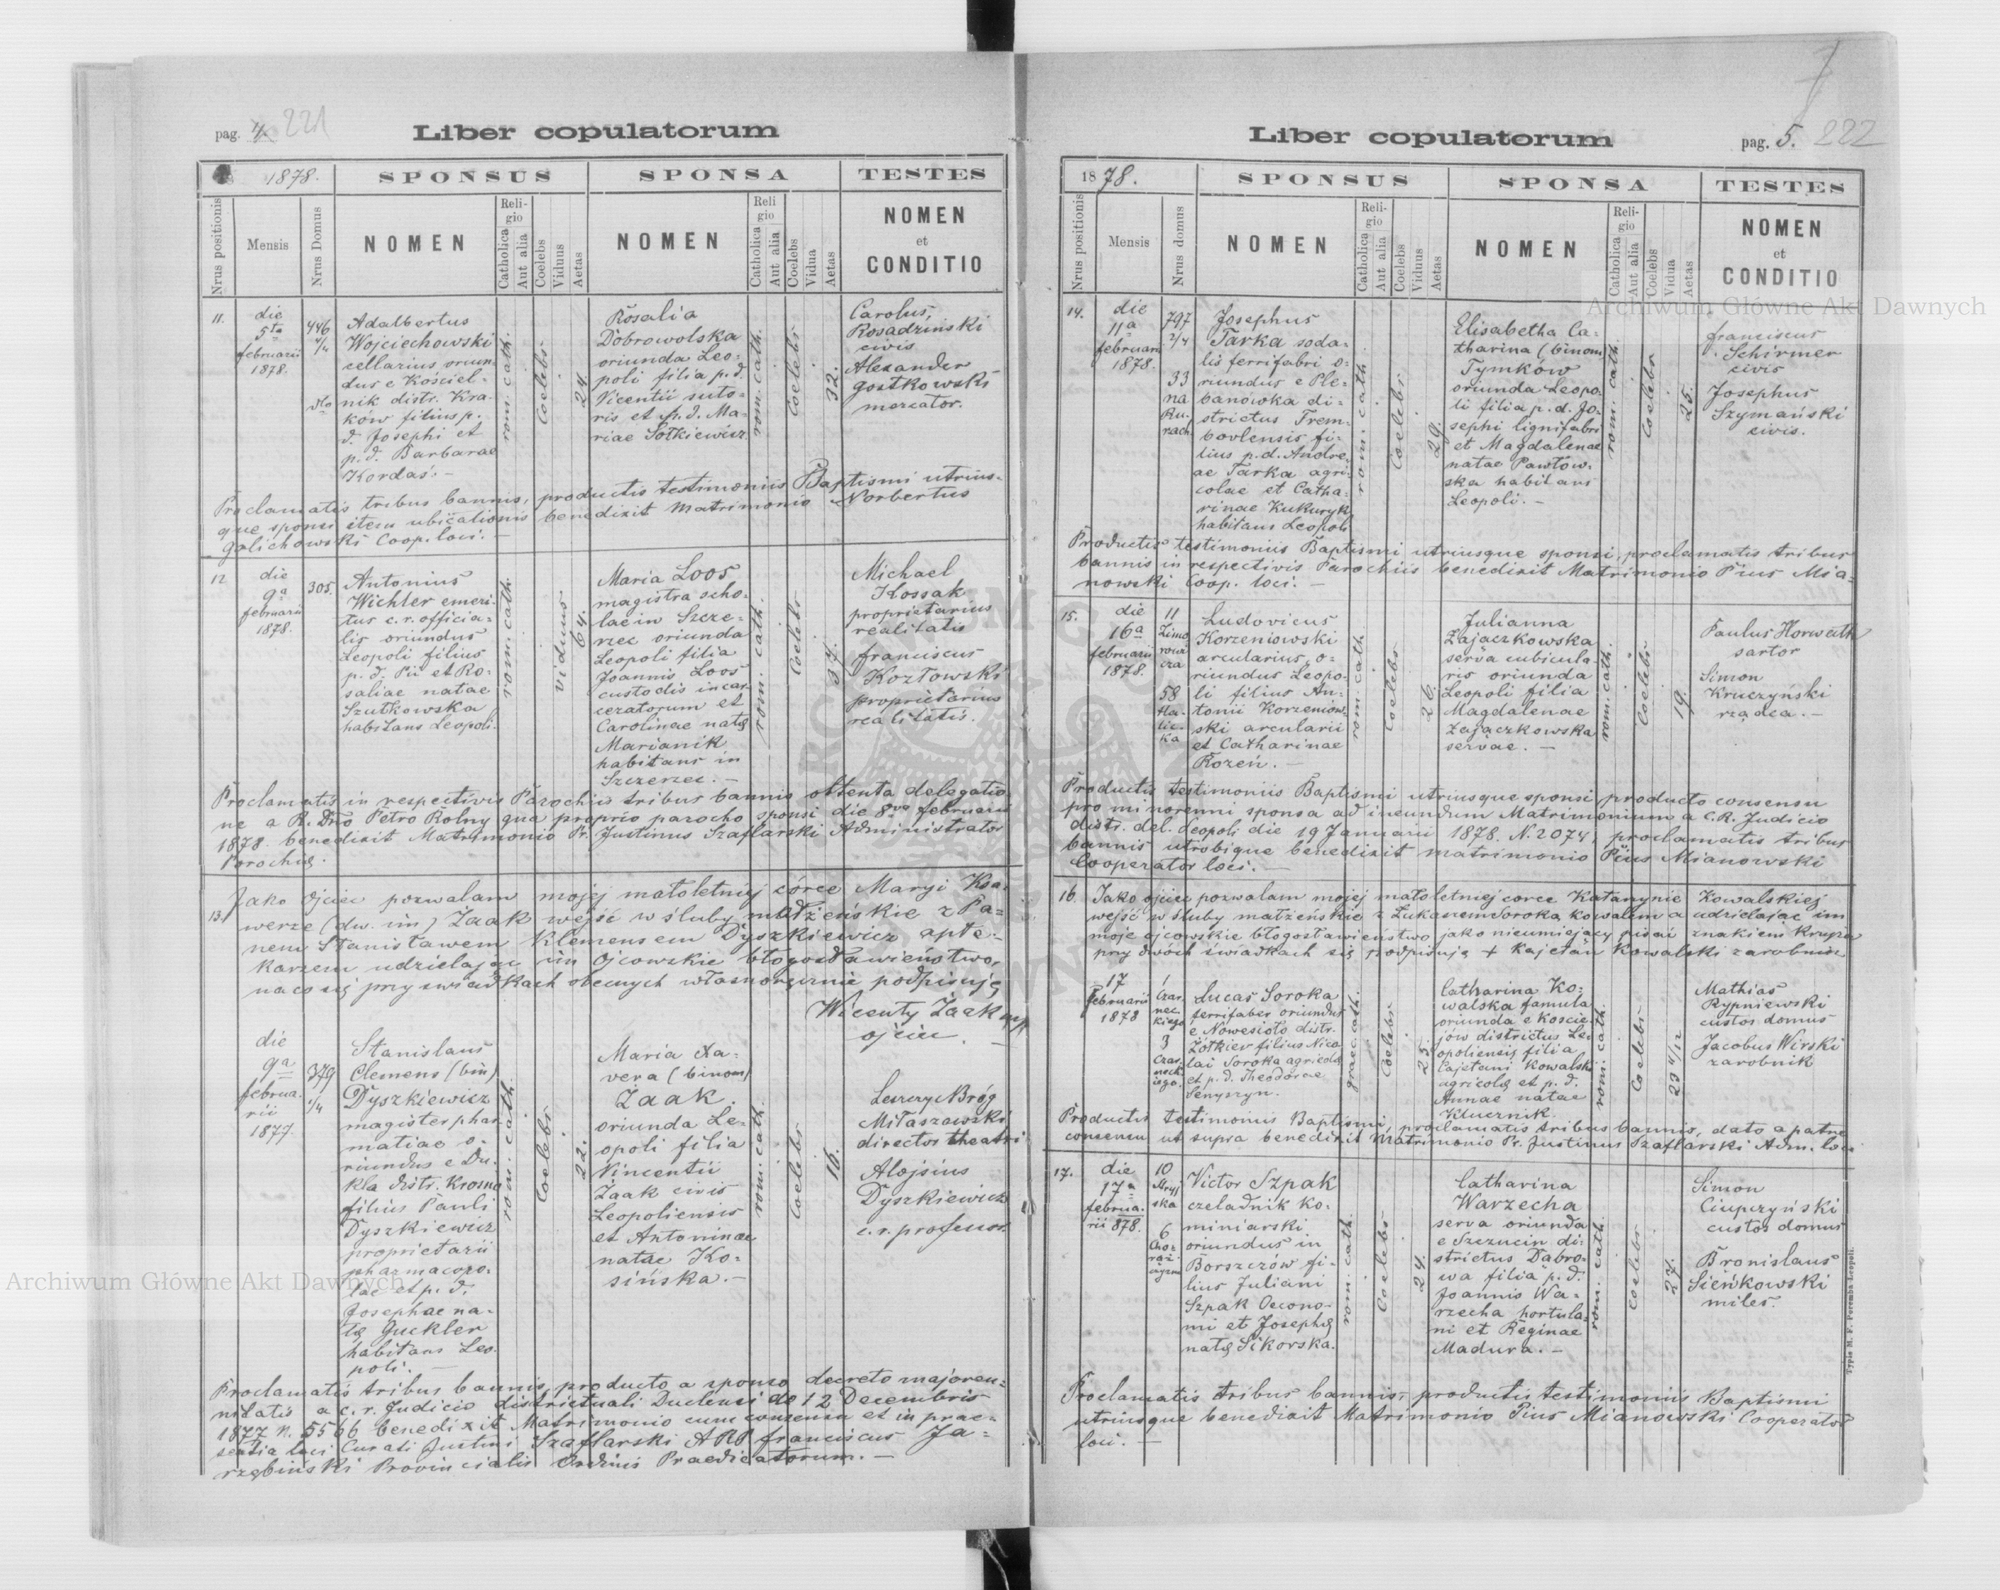 pag. 4. 221
Liber copulatorum
1878.
SPONSUS
SPONSA
TESTES
Nrus positionis
Mensis
Nrus Domus
NOMEN
Religio
Catholica
Aut alia
Coelebs
Viduus
Aetas
NOMEN
Religio
Catholica
Aut alia
Coelebs
Vidua
Aetas
NOMEN
et
CONDITIO
11.
die
5ta
februarii
1878.
446
4/4
dto
Adalbertus
Wojciechowski
cellarius oriun-
dus e Kościel-
nik distr. Kra-
ków filius p.
d. Josephi et
p. d. Barbarae
Kordaś. -
rom. cath.
Coelebs
24.
Rosalia
Dobrowolska
oriunda Leo-
poli filia p. d.
Vicentii suto-
ris et p. d. Ma-
riae Sotkiewicz
rom. cath.
Coelebs
32.
Carolus
Rosadziński
civis
Alexander
Gostkowski
mercator.
Proclamatis tribus bannis, productis testimoniis Baptismi utrius-
que sponsi item ubicationis benedixit Matrimonio Norbertus
Golichowski Coop. loci. -
12
die
9a
februarii
1878.
305.
Antonius
Wichler emeri-
tus c. r. officia-
lis oriundus
Leopoli filius
p. d. Pii et Ro-
saliae natae
Szutkowska
habitans Leopoli.
rom. cath.
viduus
64.
Maria Loos
magistra scho-
lae in Szcze-
rzec oriunda
Leopoli filia
Joannis Loos
custodis incar-
ceratorum et
Carolinae natę
Marianik
habitans in
Szczerzec. -
rom. cath.
Coelebs
37.
Michael
Kossak
proprietarius
realitatis
franciscus
Kozłowski
proprietarius
realitatis.
Proclamatis in respectivis Parochiis tribus bannis obtenta delegatio
ne a R. Dno Petro Rolny qua proprio parocho sponsi die 8va februarii
1878. benedixit Matrimonio Pr. Justinus Szaflarski Administrator
Parochię.
13.
Jako ojciec pozwalam mojej małoletniej córce Maryi Ksa-
werze (dw. im) Żaak wejść w śluby małżeńskie z Pa-
nem Stanisławem Klemensem Dyszkiewicz apte-
karzem udzielając im Ojcowskie błogosławieństwo,
na co się przy świadkach obecnych własnoręcznie podpisuję
Wicenty Żaak mp
ojciec.
die
9a
februa-
rii
1877.
379
1/4
Stanislaus
Clemens (bin)
Dyszkiewicz
magister phar-
matiae o-
riundus e Du-
kla distr. Krosno
filius Pauli
Dyszkiewicz
proprietarii
pharmacopo-
lae et p. d.
Josephae na-
tę Guckler
habitans Leo-
poli. -
rom. cath.
Coelebs
22.
Maria Xa-
vera (binom)
Żaak
oriunda Le-
opoli filia
Vincentii
Żaak civis
Leopoliensis
et Antoninae
natae Ko-
sińska. -
rom. cath.
Coelebs
16.
Miłaszewski
director theatri
Alojsius
Dyszkiewicz
c. r. professor.
Proclamatis tribus bannis, producto a sponso decreto majoren-
nitatis a c. r. Judicio districtuali Duclensi de 12 Decembris
1877 N. 5566 benedixit Matrimonio cum consensu et in prae-
sentia loci Curati Justini Szaflarski ARP franciscus Ja-
rzębiński Provincialis Ordinis Praedicatorum. -
7
Liber copulatorum
pag. 5. 222
1878.
SPONSUS
SPONSA
TESTES
Nrus positionis
Mensis
Nrus domus
NOMEN
Religio
Catholica
Aut alia
Coelebs
Viduus
Aetas
NOMEN
Religio
Catholica
Aut alia
Coelebs
Vidua
Aetas
NOMEN
et
CONDITIO
14.
die
11a
februarii
1878.
797
2/4
33
na
Ru-
rach
Josephus
Tarka soda-
lis ferrifabri o-
riundus e Ple-
banówka di-
strictus Trem-
bovlensis fi-
lius p. d. Andre-
ae Tarka agri-
colae et Catha-
rinae Kukuryk
habitans Leopoli
rom. cath.
Coelebs
29.
Elisabetha Ca-
tharina (binom)
Tymków
oriunda Leopo-
li filia p. d. Jo-
sephi lignifabri
et Magdalenae
natae Pawłow-
ska habitans
Leopoli. -
rom. cath.
Coelebs
25.
franciscus
Schirmer
civis
Josephus
Szymański
civis.
Productis testimoniis Baptismi utriusque sponsi, proclamatis tribus
bannis in respectivis Parochiis benedixit Matrimonio Pius Mia-
nowski Coop. loci. -
15.
die
16a
februarii
1878.
11
Zimo
rowi
cza
58
Ha-
lic-
ka
Ludovicus
Korzeniowski
arcularius, o-
riundus Leopo-
li filius An-
tonii Korzeniow-
ski arcularii
et Catharinae
Kozeń. -
rom. cath.
Coelebs
26.
Julianna
Zajączkowska
serva cubicula-
ris oriunda
Leopoli filia
Magdalenae
Zajączkowska
servae. -
rom. cath.
Coelebs
19.
Paulus Horwath
sartor
Simon
Kruczyński
rządca. -
Productis testimoniis Baptismi utriusque sponsi producto consensu
pro minorenni sponsa ad ineundum Matrimonium a C. R. Judicio
distr. del. Leopoli die 19 Januarii 1878. N. 2074, proclamatis tribus
bannis utrobique benedixit matrimonio Pius Mianowski
Cooperator loci. -
16.
Jako ojciec pozwalam mojej małoletniej corce Katarzynie Kowalskiej
wejść w śluby małżeńskie z Łukaszem Soroka kowalem a udzielając im
moje ojcowskie błogosławieństwo jako nieumiejący pisać znakiem krzyża
przy dwóch świadkach się podpisuję + Kajetan Kowalski zarobnik
17
februarii
1878
1
Czar-
nec-
kiego
3
Czar-
neck-
iego.
Lucas Soroka
ferrifaber oriundus
e Nowesioło distr.
Żółkiew filius Nico-
lai Soroka agricolę
et p. d. Theodorae
Senyszyn.
graec. cath.
Coelebs
25.
Catharina Ko-
walska famula
oriunda e Koście-
jów districtus Le-
opoliensis filia
Cajetani Kowalski
agricolę et p. d.
Annae natae
Klucznik.
rom. cath.
Coelebs
23 4/12
Mathias
Rypniewski
custos domus
Jacobus Wirski
zarobnik
Productis testimoniis Baptismi, proclamatis tribus bannis, dato a patre
consensu ut supra benedixit Matrimonio Pr. Justinus Szaflarski Adm. loci
17.
die
17a
februa-
rii 878.
10
Stryj
ska
6
Cho-
rąż-
czyzna
Victor Szpak
czeladnik ko-
miniarski
oriundus in
Borszczów fi-
lius Juliani
Szpak Oecono-
mi et Josephę
natę Sikorska.
rom. cath.
Coelebs
24.
Catharina
Warzecha
serva oriunda
e Szczucin di-
strictus Dąbro-
wa filia p. d.
Joannis Wa-
rzecha hortula-
ni et Reginae
Madura. -
rom. cath.
Coelebs
27.
Simon
Ciupczyński
custos domus
Bronislaus
Sieńkowski
miles.
Proclamatis tribus bannis, productis testimoniis Baptismi
utriusque benedixit Matrimonio Pius Mianowski Cooperator
loci. -
Archiwum Główne Akt Dawnych
Archiwum Główne Akt Dawnych